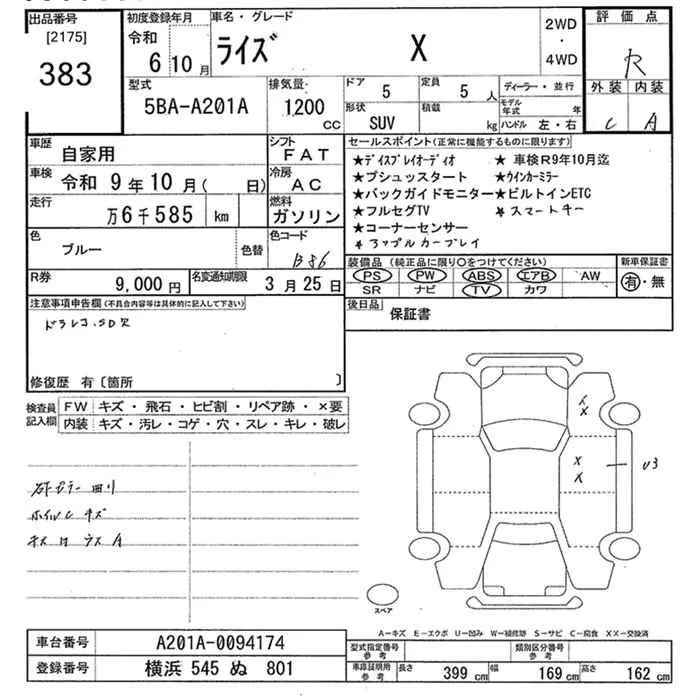 出品番号 初度登録年月 車名・グレード 2WD・4WD 評価点
[2175] 令和 6 10月 ライズ X R
383 外装 内装
型式 排気量 ドア 5 定員 5人 ディーラー・並行 C A
5BA-A201A 1,200 CC 形状 SUV 積載 kg モデル年式 年 ハンドル 左・右
車歴 自家用 シフト FAT セールスポイント(正常に機能するものに限ります)
車検 令和 9年10月( 日) 冷房 AC
走行 万6千585 km 燃料 ガソリン
★ディスプレイオーディオ ★車検R9年10月迄
★プシュッスタート ★ウインカーミラー
★バックガイドモニター ★ビルトインETC
★フルセグTV ★スマートキー
★コーナーセンサー
★アップルカープレイ
色 ブルー 色替 色コード B86
装備品(純正品に限り○をつけてください) 新車保証書
PS PW ABS エアB AW 有・無
SR ナビ TV カワ
R券 9,000円 名変通知期限 3月25日
後日品 保証書
注意事項申告欄(不具合内容等は具体的に記入して下さい)
ドラレコ.SD欠
修復歴 有〔箇所 〕
検査員記入欄 FW キズ・飛石・ヒビ割・リペア跡・×要
内装 キズ・汚レ・コゲ・穴・スレ・キレ・破レ
ホイルC キズ
X
X
X
X
U3
スペア
A-キズ E-エクボ U-凹み W-補修跡 S-サビ C-腐食 XX-交換済
車台番号 A201A-0094174 型式指定番号 参考 類別区分番号 参考
登録番号 横浜 545 ぬ 801 車庫証明用 参考 長さ 399 cm 幅 169 cm 高さ 162 cm